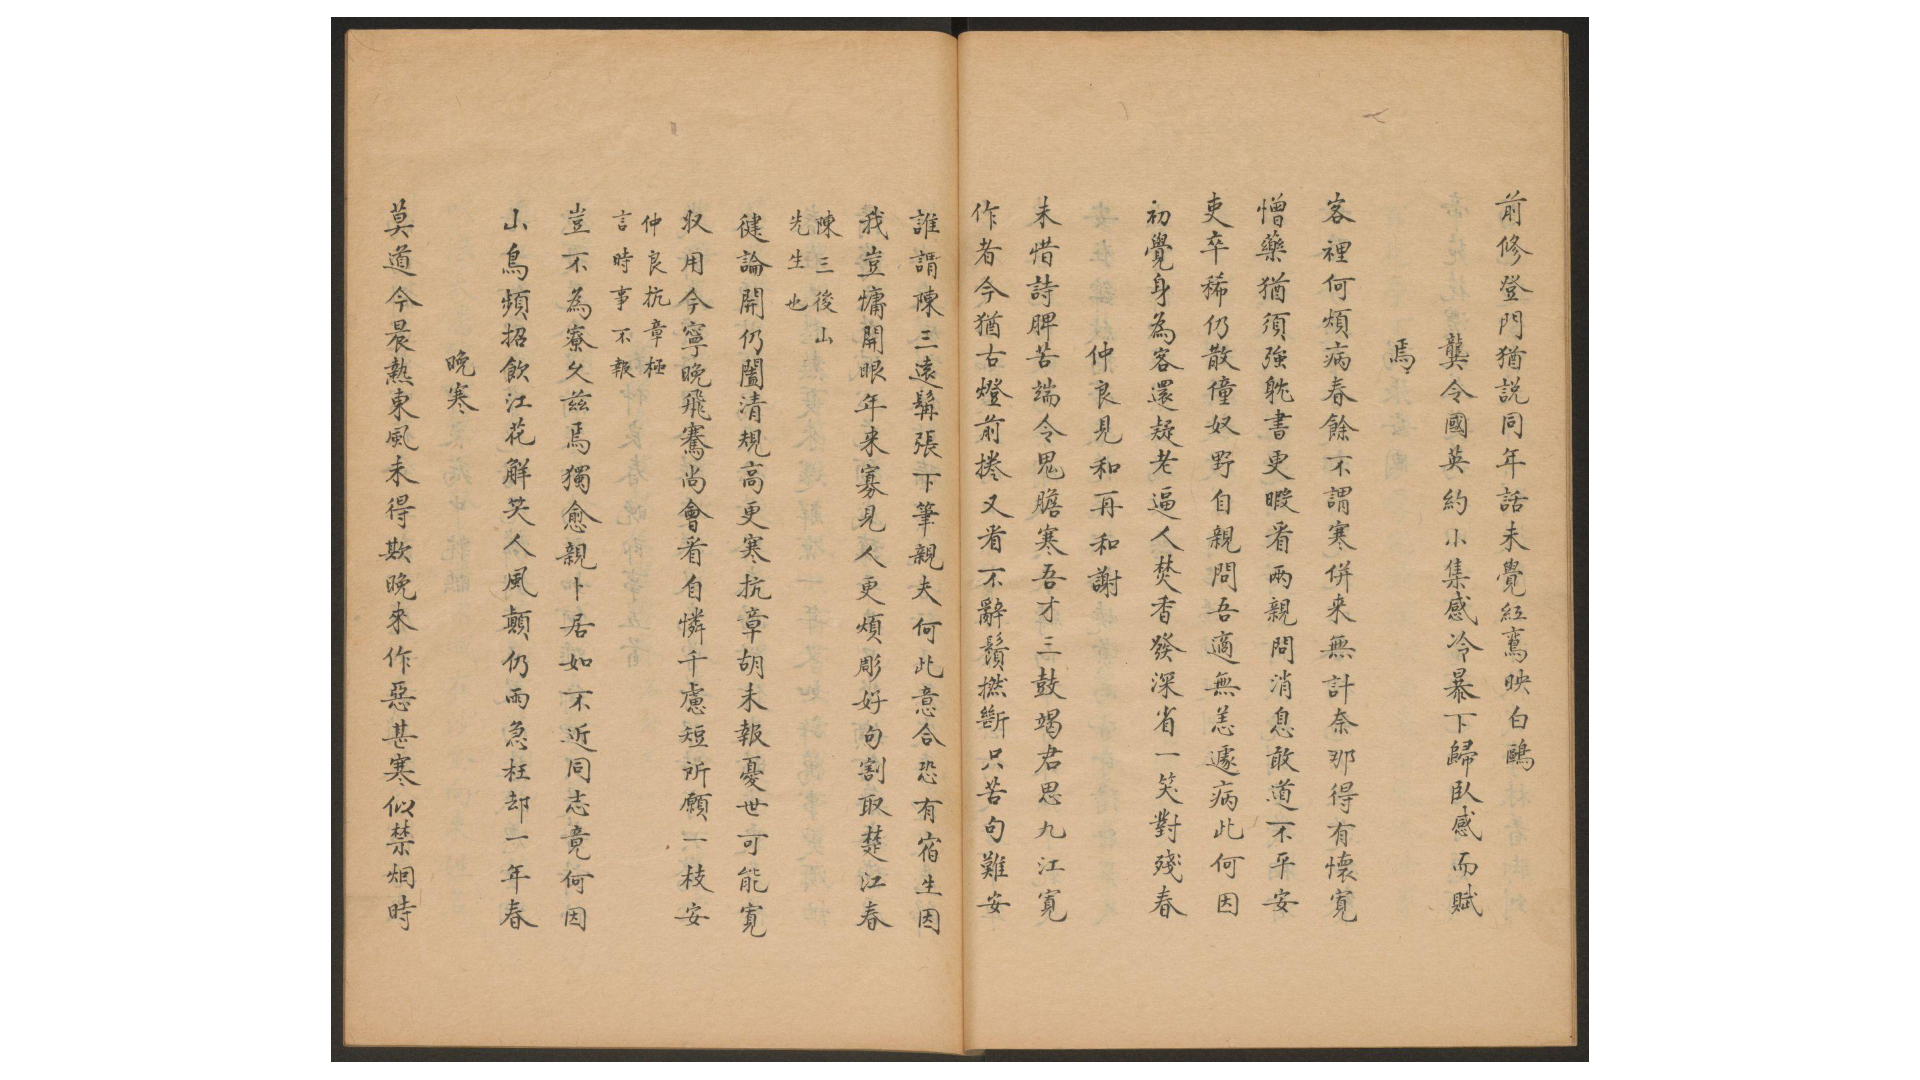 前修登門猶説同年話未覺紅鸞映白鷗
龔令國英約小集感冷暴下歸臥感而賦
焉
客裡何煩病春餘不謂寒併來無計奈那得有懷寬
憎藥猶須強躭書更暇看兩親問消息敢道不平安
吏卒稀仍散僮奴野自親問吾適無恙遽病此何因
初覺身為客還疑老逼人焚香發深省一笑對殘春
仲良見和再和謝
未惜詩脾苦端令鬼膽寒吾才三鼓竭君思九江寬
作者今猶古燈前捲又看不辭鬚撚斷只苦句難安
誰謂陳三遠髯張下筆親夫何此意合恐有宿生因
我豈慵開眼年来寡見人更煩彫好句割取楚江春
陳三後山
先生也
健論開仍闔清規高更寒抗章胡未報憂世可能寬
収用今寧晚飛騫尚會看自憐千慮短所願一枝安
仲良抗章極
言時事不報
豈不為寮久兹焉獨愈親卜居如不近同志竟何因
山鳥頻招飲江花解笑人風顛仍雨急枉却一年春
晚寒
莫道今晨熱東風未得欺晚來作惡甚寒似禁烟時